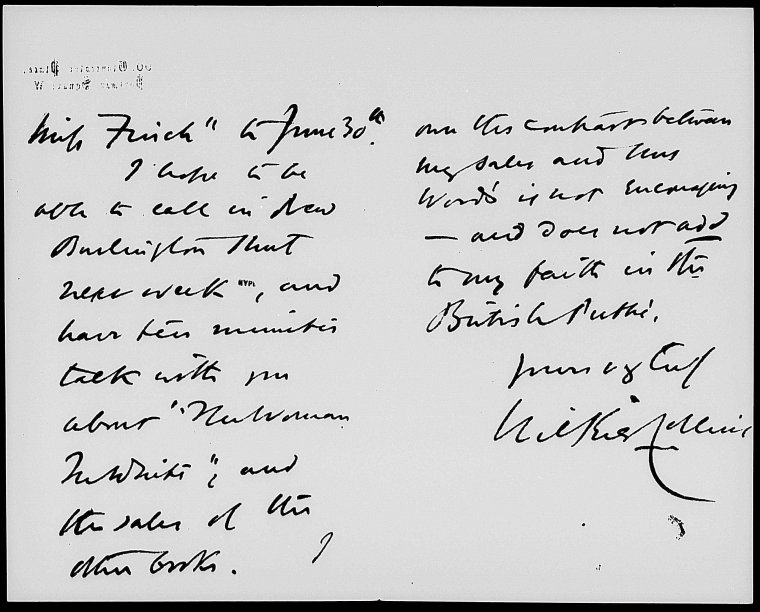 Miss Finch" to June 30th.
I hope to be
able to call in New
Burlington Street
next week, and
have ten minutes
talk with you
about "The Woman
In White", and
the sales of the
other books. I
own the contrast between
my sales and Mrs
Wood's is not encouraging
— and does not add
to my faith in the
British Public.
yours
Wilkie Collins
NYPL